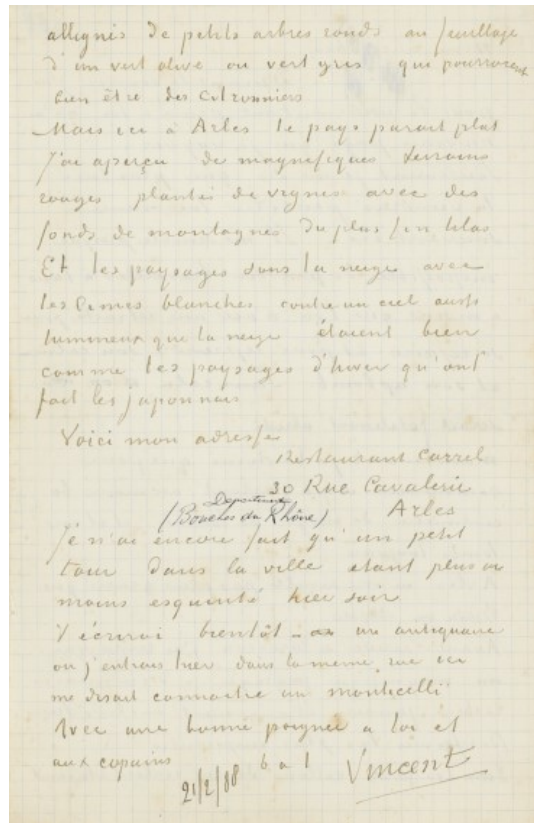 allignis de petits arbres ronds au feuillage
d'un vert olive ou vert gris qui pourroient
bien être des citronniers
Mais ici à Arles le pays parait plat
J'ai aperçu de magnifiques terrains
rouges plantés de vignes avec des
fonds de montagnes du plus fin lilas
Et les paysages sous la neige avec
les cimes blanches contre un ciel aussi
lumineux que la neige étaient bien
comme les paysages d'hiver qu'ont
fait les japonnais
Voici mon adresse
Restaurant Carrel
30 Rue Cavalerie
Departement
(Bouches du Rhône) Arles
Je n'ai encore fait qu'un petit
tour dans la ville etant plus ou
moins esquinté hier soir
T'écrirai bientôt – un antiquaire
où j'entrais hier dans la meme rue ici
me disait connaitre un monticelli
Avec une bonne poignée a toi et
aux copains b a l Vincent
21/2/88